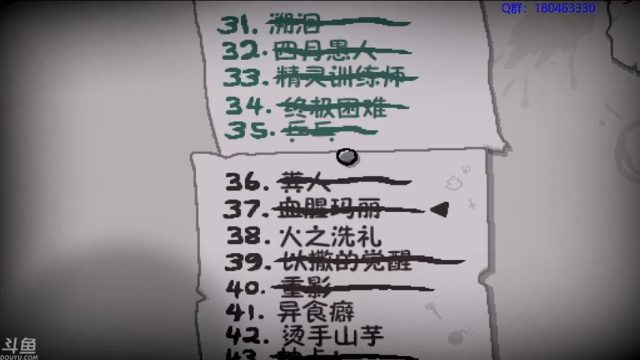 Q群：180463330
31. 溯洄
32. 四月愚人
33. 精灵训练师
34. 终极困难
35. 乓乓
36. 粪人
37. 血腥玛丽
38. 火之洗礼
39. 以撒的觉醒
40. 重影
41. 异食癖
42. 烫手山芋
43.
斗鱼
DOUYU.COM